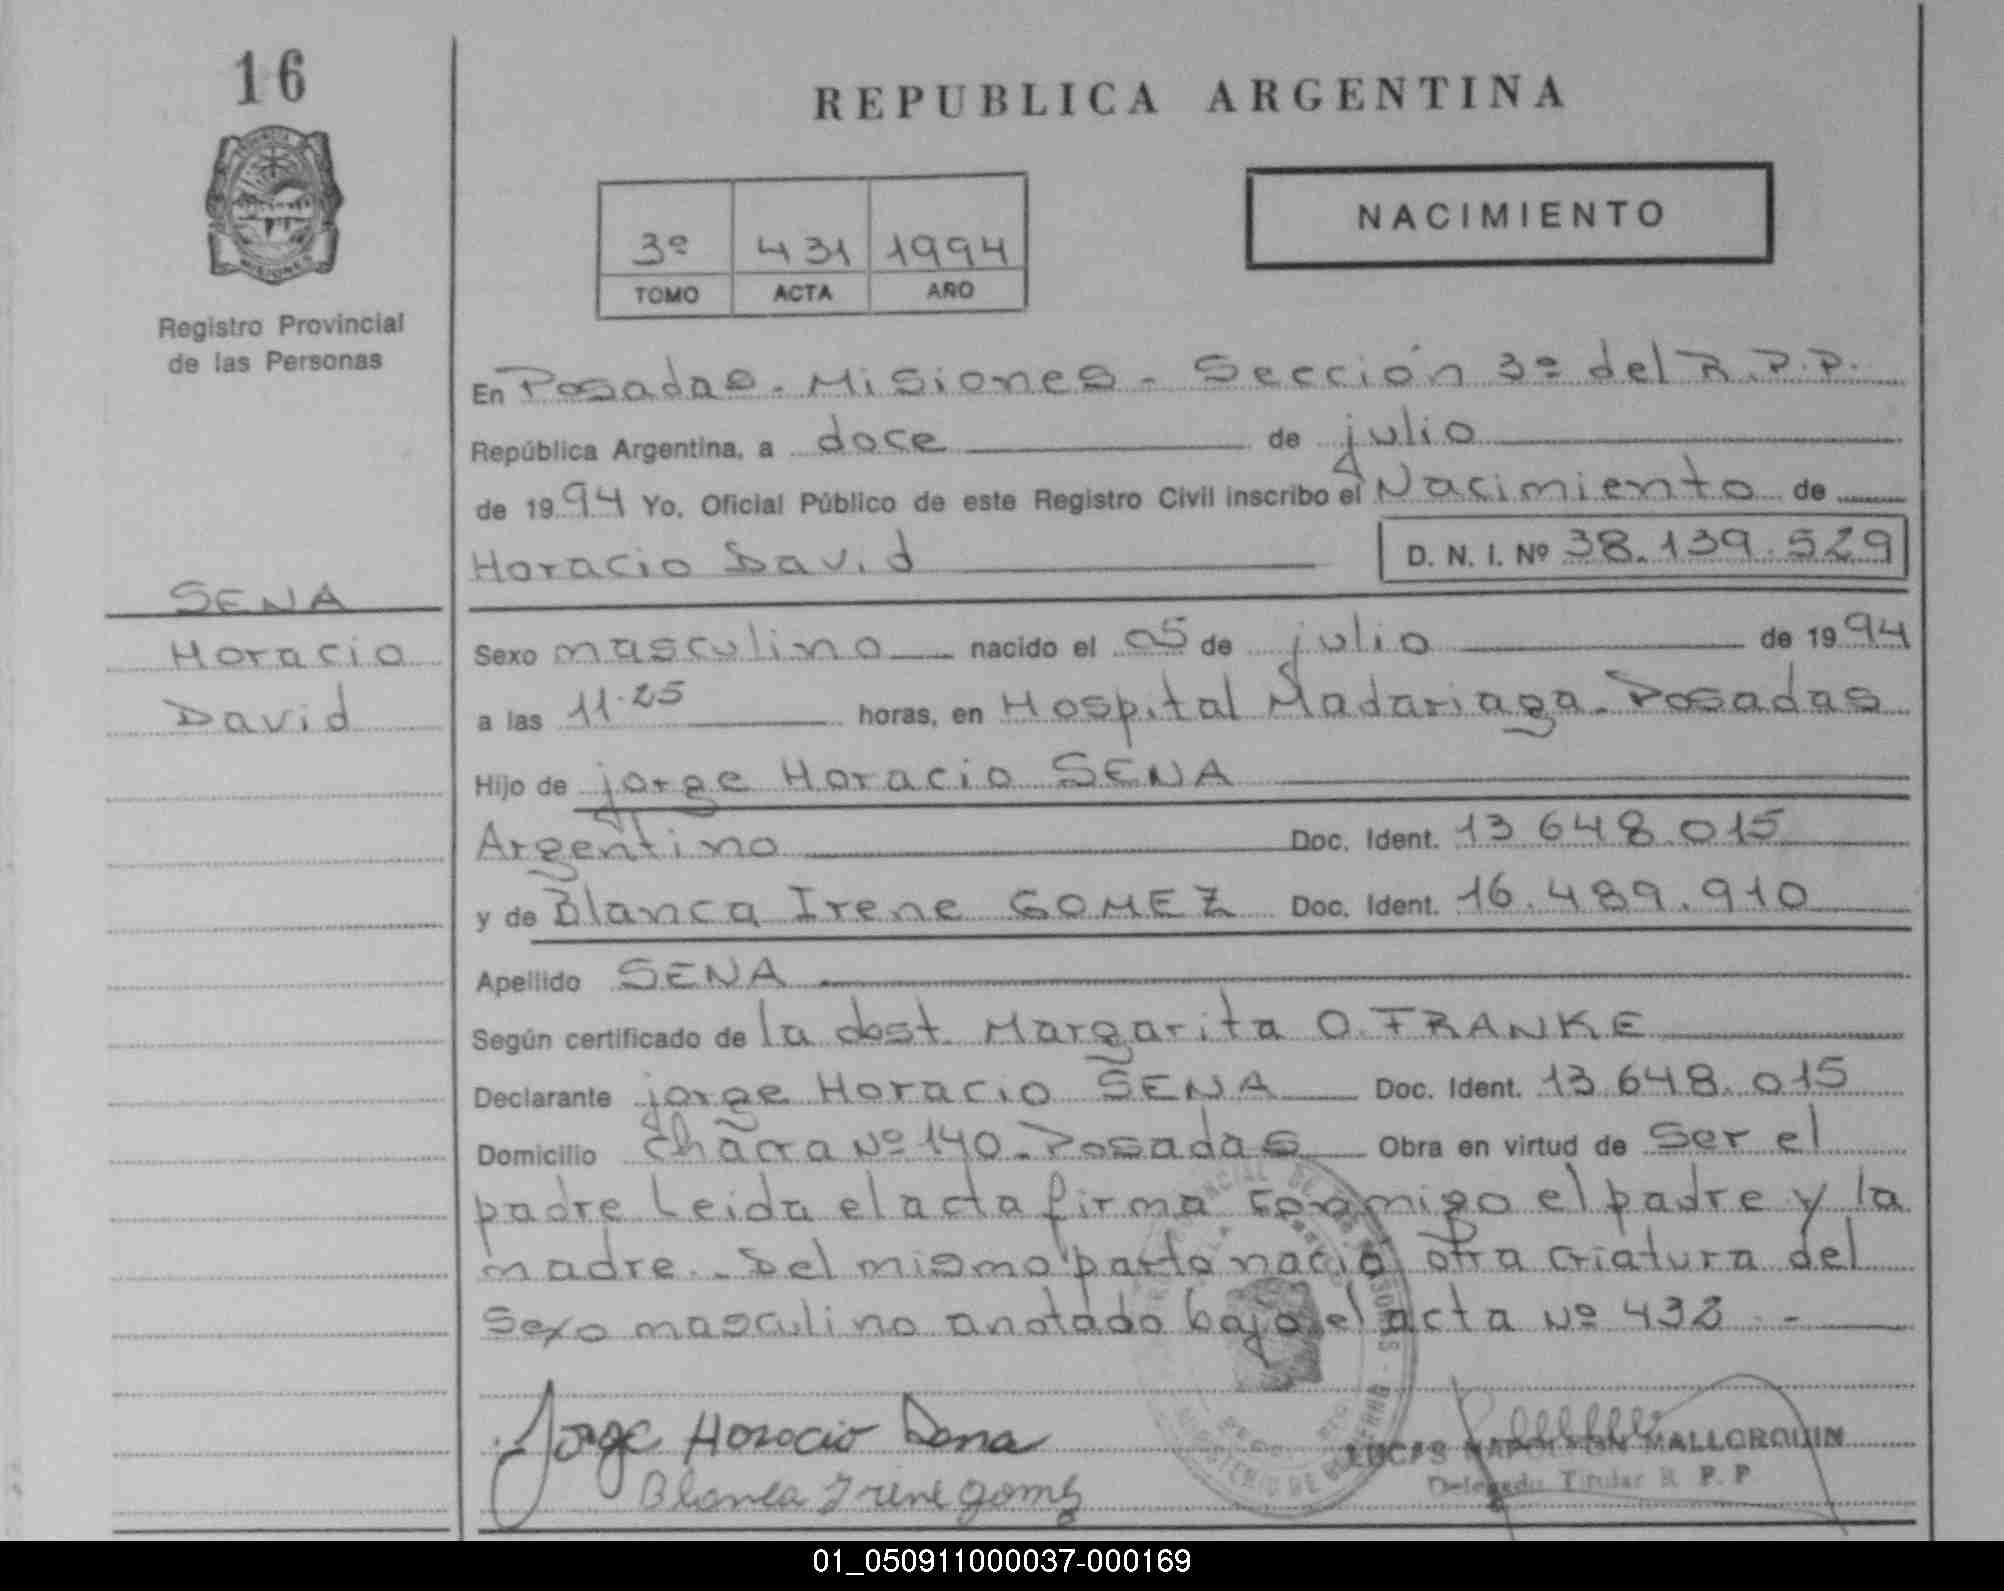 16
REPUBLICA ARGENTINA
3º 431 1994
TOMO ACTA AÑO
NACIMIENTO
MISIONES
Registro Provincial
de las Personas
En Posadas - Misiones - Sección 3º del R.P.P.
República Argentina, a doce de julio
de 1994 Yo, Oficial Público de este Registro Civil inscribo el Nacimiento de
Horacio David D. N. I. Nº 38.139.529
SENA
Horacio
David
Sexo masculino nacido el 05 de julio de 1994
a las 11.25 horas, en Hospital Madariaga - Posadas
Hijo de jorge Horacio SENA
Argentino Doc. Ident. 13.648.015
y de Blanca Irene GOMEZ Doc. Ident. 16.489.910
Apellido SENA
Según certificado de la obst. Margarita O. FRANKE
Declarante jorge Horacio SENA Doc. Ident. 13.648.015
Domicilio Chacra Nº 140 - Posadas Obra en virtud de ser el
padre Leida el acta firma conmigo el padre y la
madre.- Del mismo parto nació otra criatura del
sexo masculino anotado bajo el acta Nº 432 -
Jorge Horacio Sena
Blanca Irene gomez
LUCAS NAPOLEON MALLORQUIN
Delegado Titular R. P. P
01_050911000037-000169